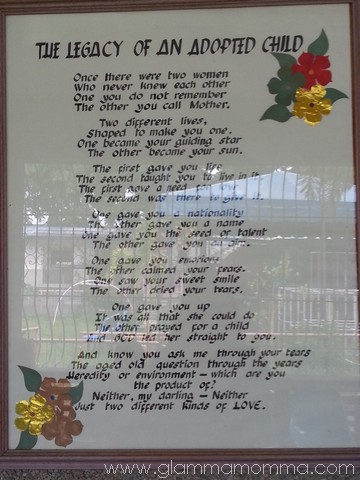 THE LEGACY OF AN ADOPTED CHILD
Once there were two women
Who never knew each other
One you do not remember
The other you call Mother.
Two different lives,
Shaped to make you one.
One became your guiding star
The other became your sun.
The first gave you life
The second taught you to live in it
The first gave a need for love
The second was there to give it.
One gave you a nationality
The other gave you a name
One gave you the seed or talent
The other gave you an aim.
One gave you emotions
The other calmed your fears.
One saw your sweet smile
The other dried your tears.
One gave you up
It was all that she could do
The other prayed for a child
And GOD led her straight to you.
And know you ask me through your tears
The aged old question through the years
Heredity or environment — which are you
the product of?
Neither, my darling — Neither
Just two different kinds of LOVE.
www.glammamomma.com